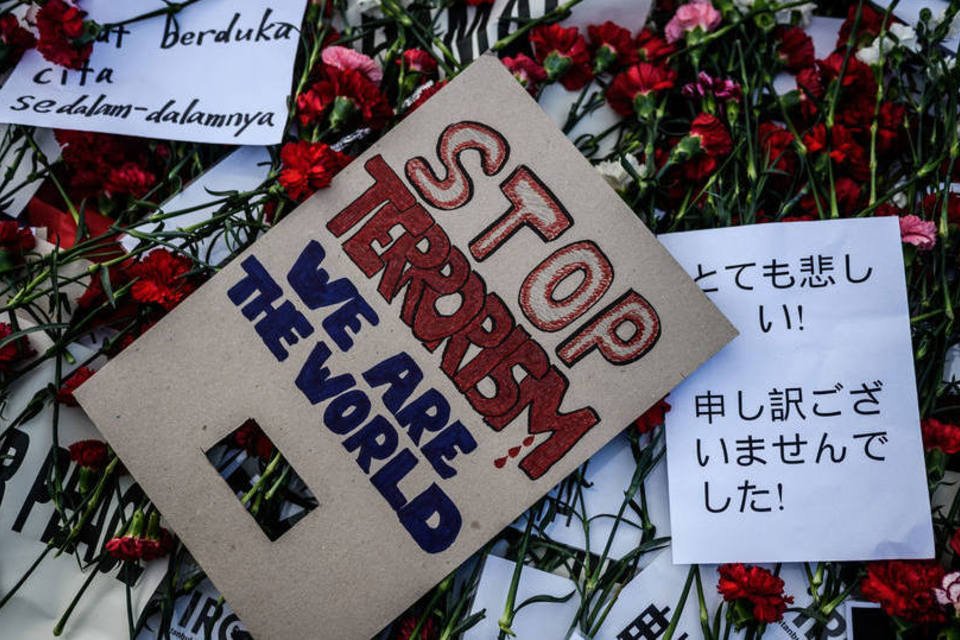 berduka
cita
sedalam-dalamnya
STOP
TERRORISM
WE ARE
THE WORLD
とても悲し
い!
申し訳ござ
いませんで
した!